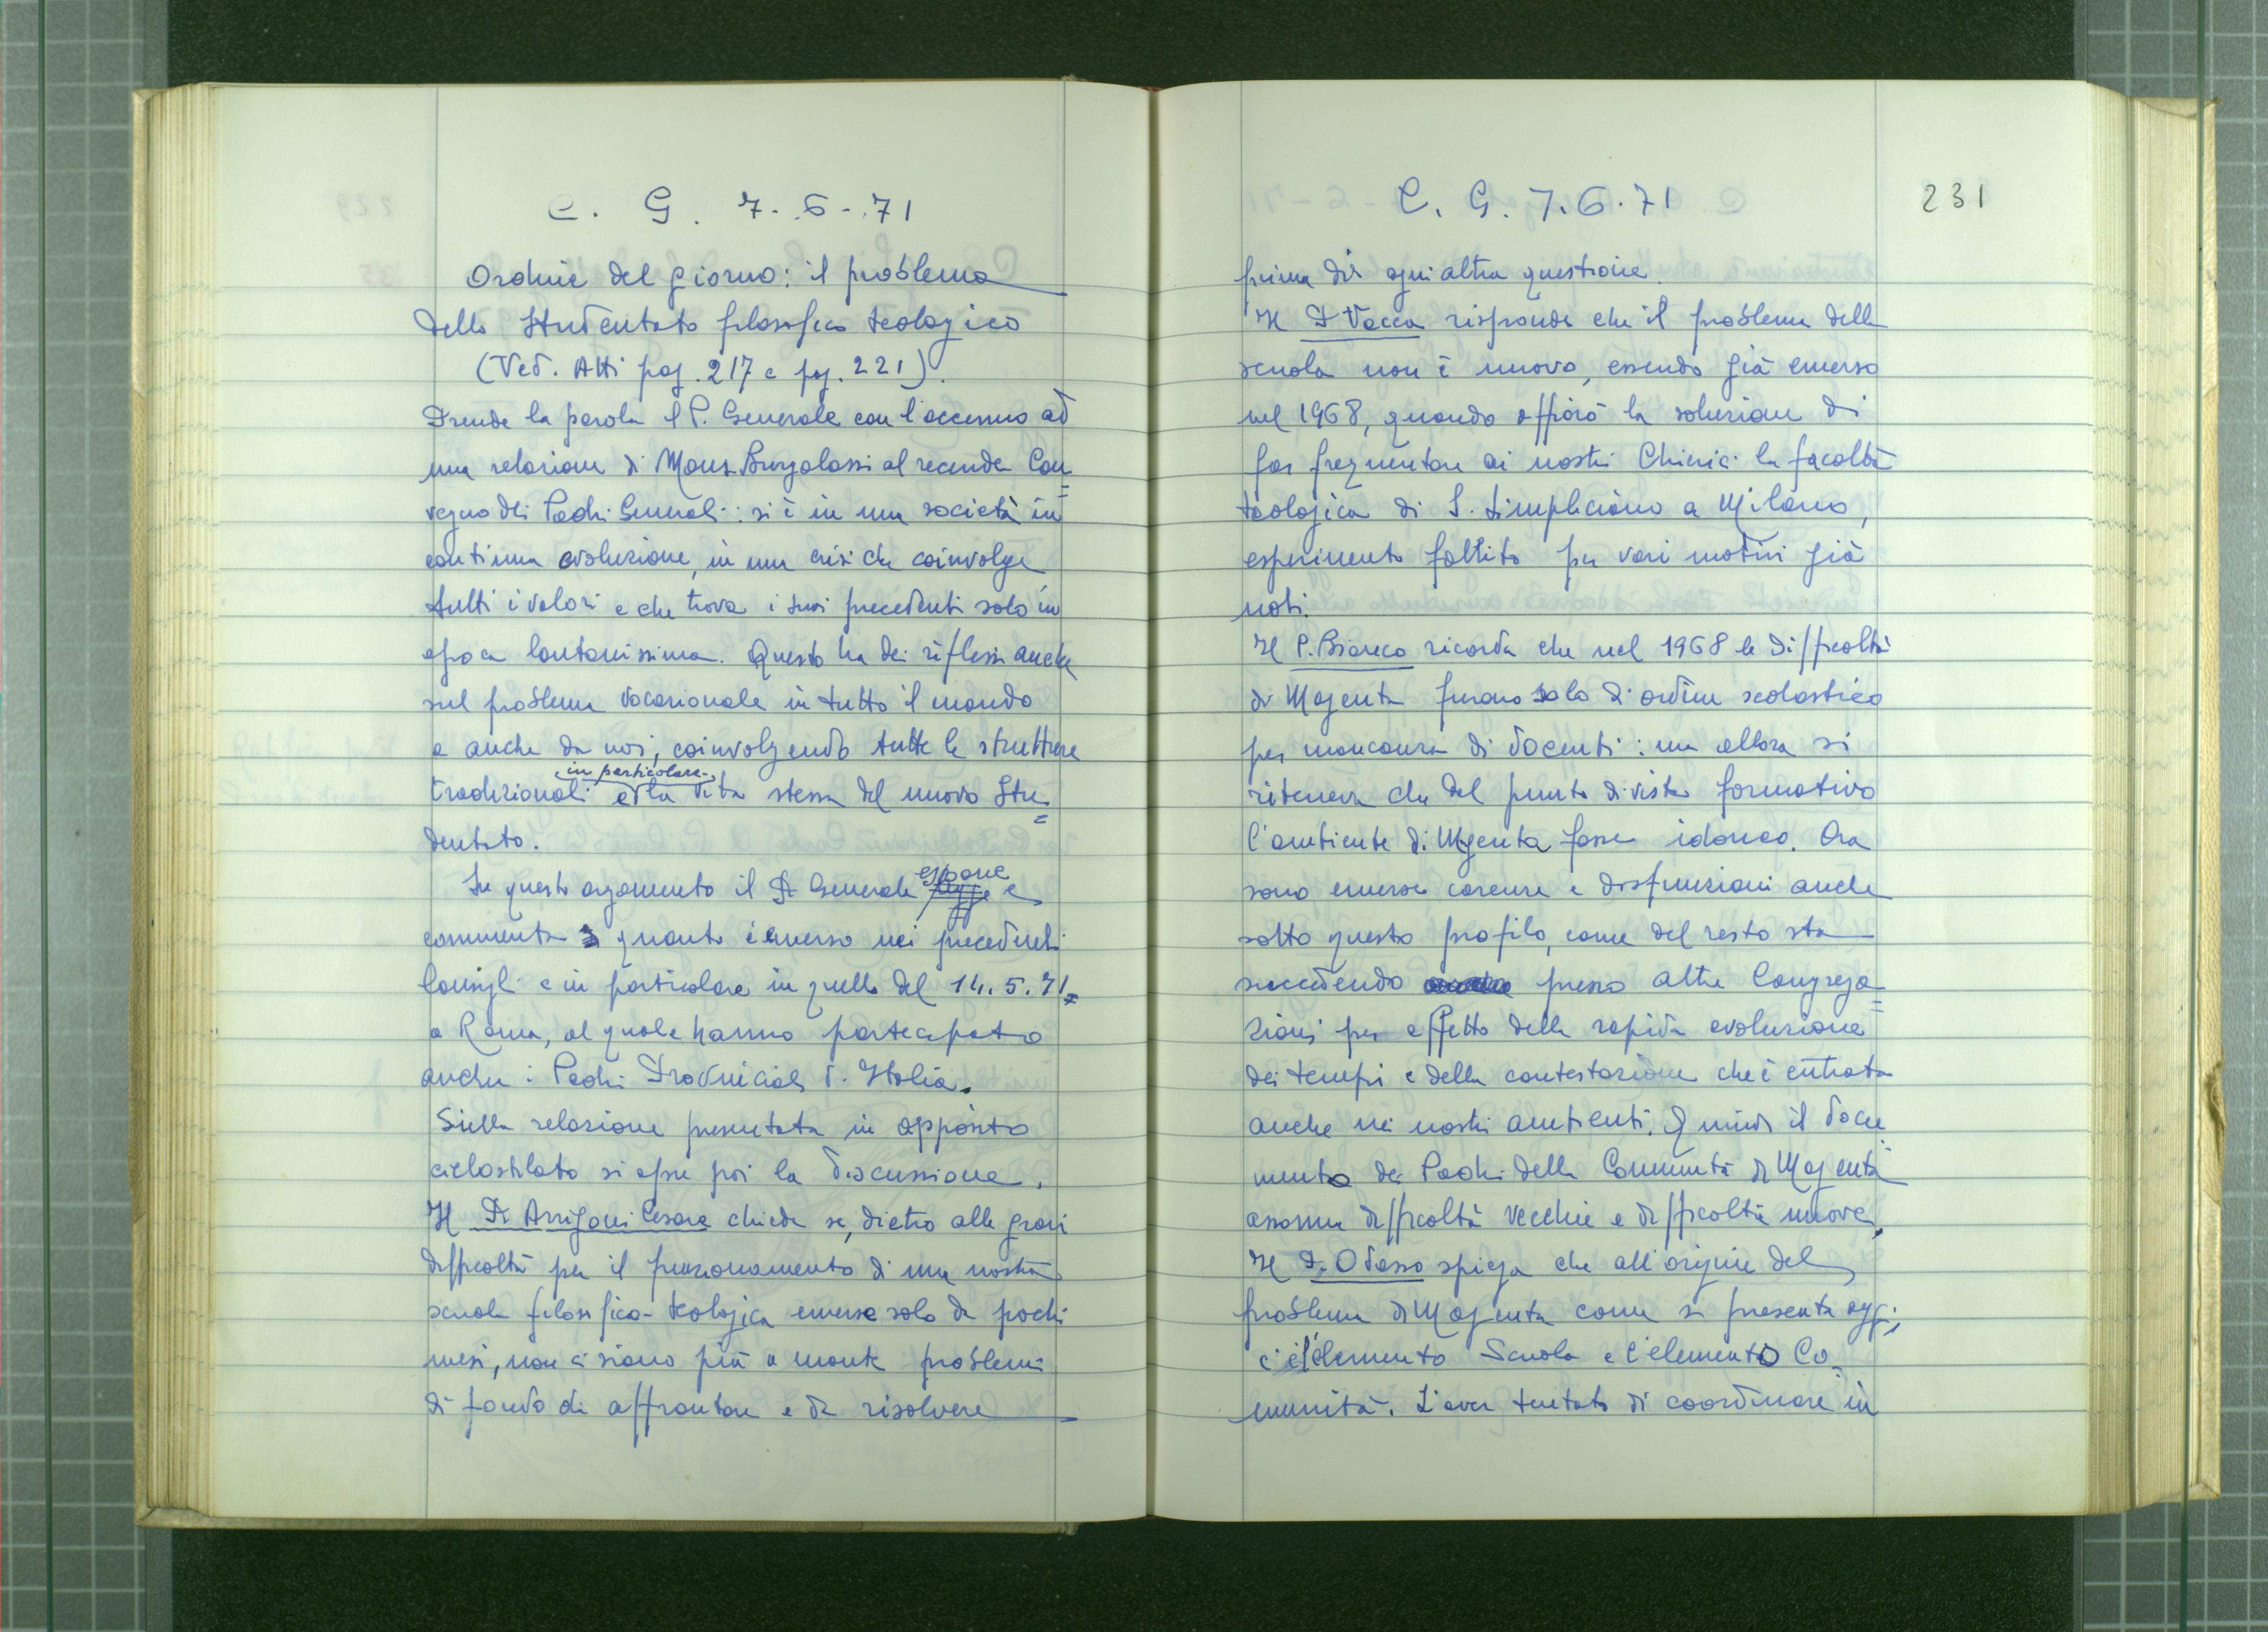 C. G. 7-6-71
Ordine del giorno: il problema
dello Studentato filosofico teologico
(Ved. Atti pag. 217 e pag. 221).
Prende la parola il P. Generale con l'accenno ad
una relazione di Mons. Burgalassi al recente Con=
vegno dei Padri Generali: si è in una società in
continua evoluzione, in una crisi che coinvolge
tutti i valori e che trova i suoi precedenti solo in
epoca lontanissima. Questo ha dei riflessi anche
sul problema vocazionale in tutto il mondo
e anche da noi, coinvolgendo tutte le strutture
tradizionali e in particolare la vita stessa del nuovo Stu=
dentato.
Su questo argomento il P. Generale espone e
commenta quanto è emerso nei precedenti
Consigli e in particolare in quello del 14.5.71
a Roma, al quale hanno partecipato
anche i Padri Provinciali d'Italia.
Sulla relazione presentata in apposito
ciclostilato si apre poi la discussione.
Il P. Arrigoni Cesare chiede se, dietro alle gravi
difficoltà per il funzionamento di una nostra
scuola filosofico-teologica emerse solo da pochi
mesi, non ci siano più a monte problemi
di fondo da affrontare e da risolvere
C. G. 7.6.71
231
prima di ogni altra questione.
Il P. Vacca risponde che il problema della
scuola non è nuovo, essendo già emerso
nel 1968, quando affiorò la soluzione di
far frequentare ai nostri Chierici la facoltà
teologica di S. Simpliciano a Milano,
esperimento fallito per vari motivi già
noti.
Il P. Bianco ricorda che nel 1968 le difficoltà
di Magenta furono solo di ordine scolastico
per mancanza di docenti: ma allora si
riteneva che dal punto di vista formativo
l'ambiente di Magenta fosse idoneo. Ora
sono emerse carenze e disfunzioni anche
sotto questo profilo, come del resto sta
succedendo presso altre Congrega=
zioni per effetto della rapida evoluzione
dei tempi e della contestazione che è entrata
anche nei nostri ambienti. Quindi il docu
mento dei Padri della Comunità di Magenta
assomma difficoltà vecchie e difficoltà nuove.
Il P. Odasso spiega che all'origine del
problema di Magenta come si presenta oggi,
c'è l'elemento Scuola e l'elemento Co=
munità. L'aver tentato di coordinare in